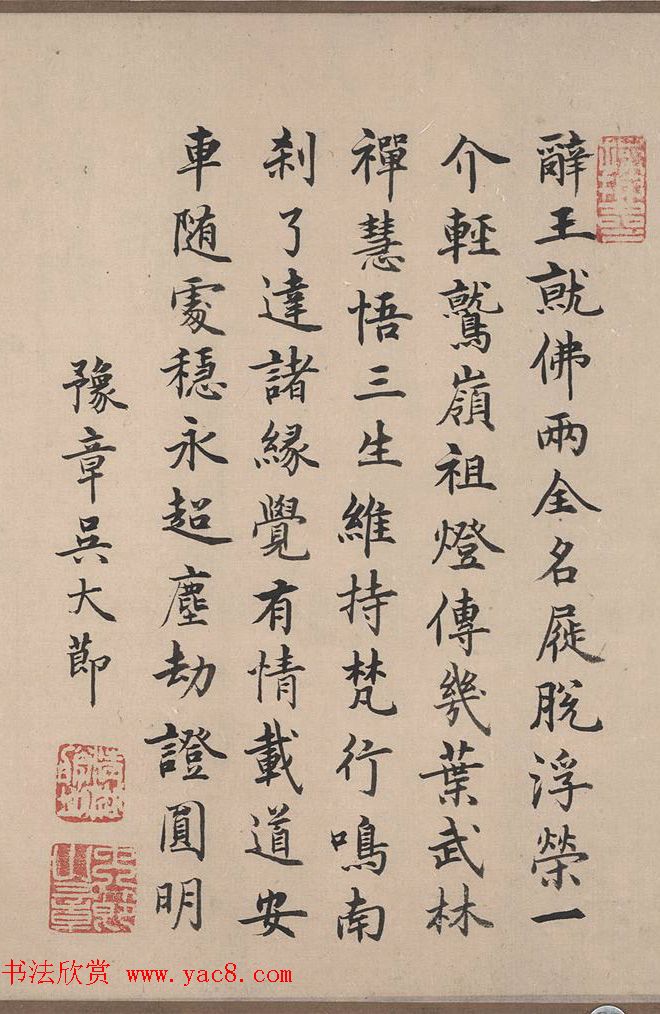 辭王就佛兩全名屣脫浮榮一
介輕鷲嶺祖燈傳幾葉武林
禪慧悟三生維持梵行鳴南
刹了達諸緣覺有情載道安
車随處穩永超塵劫證圓明
豫章吳大節
书法欣赏 www.yac8.com